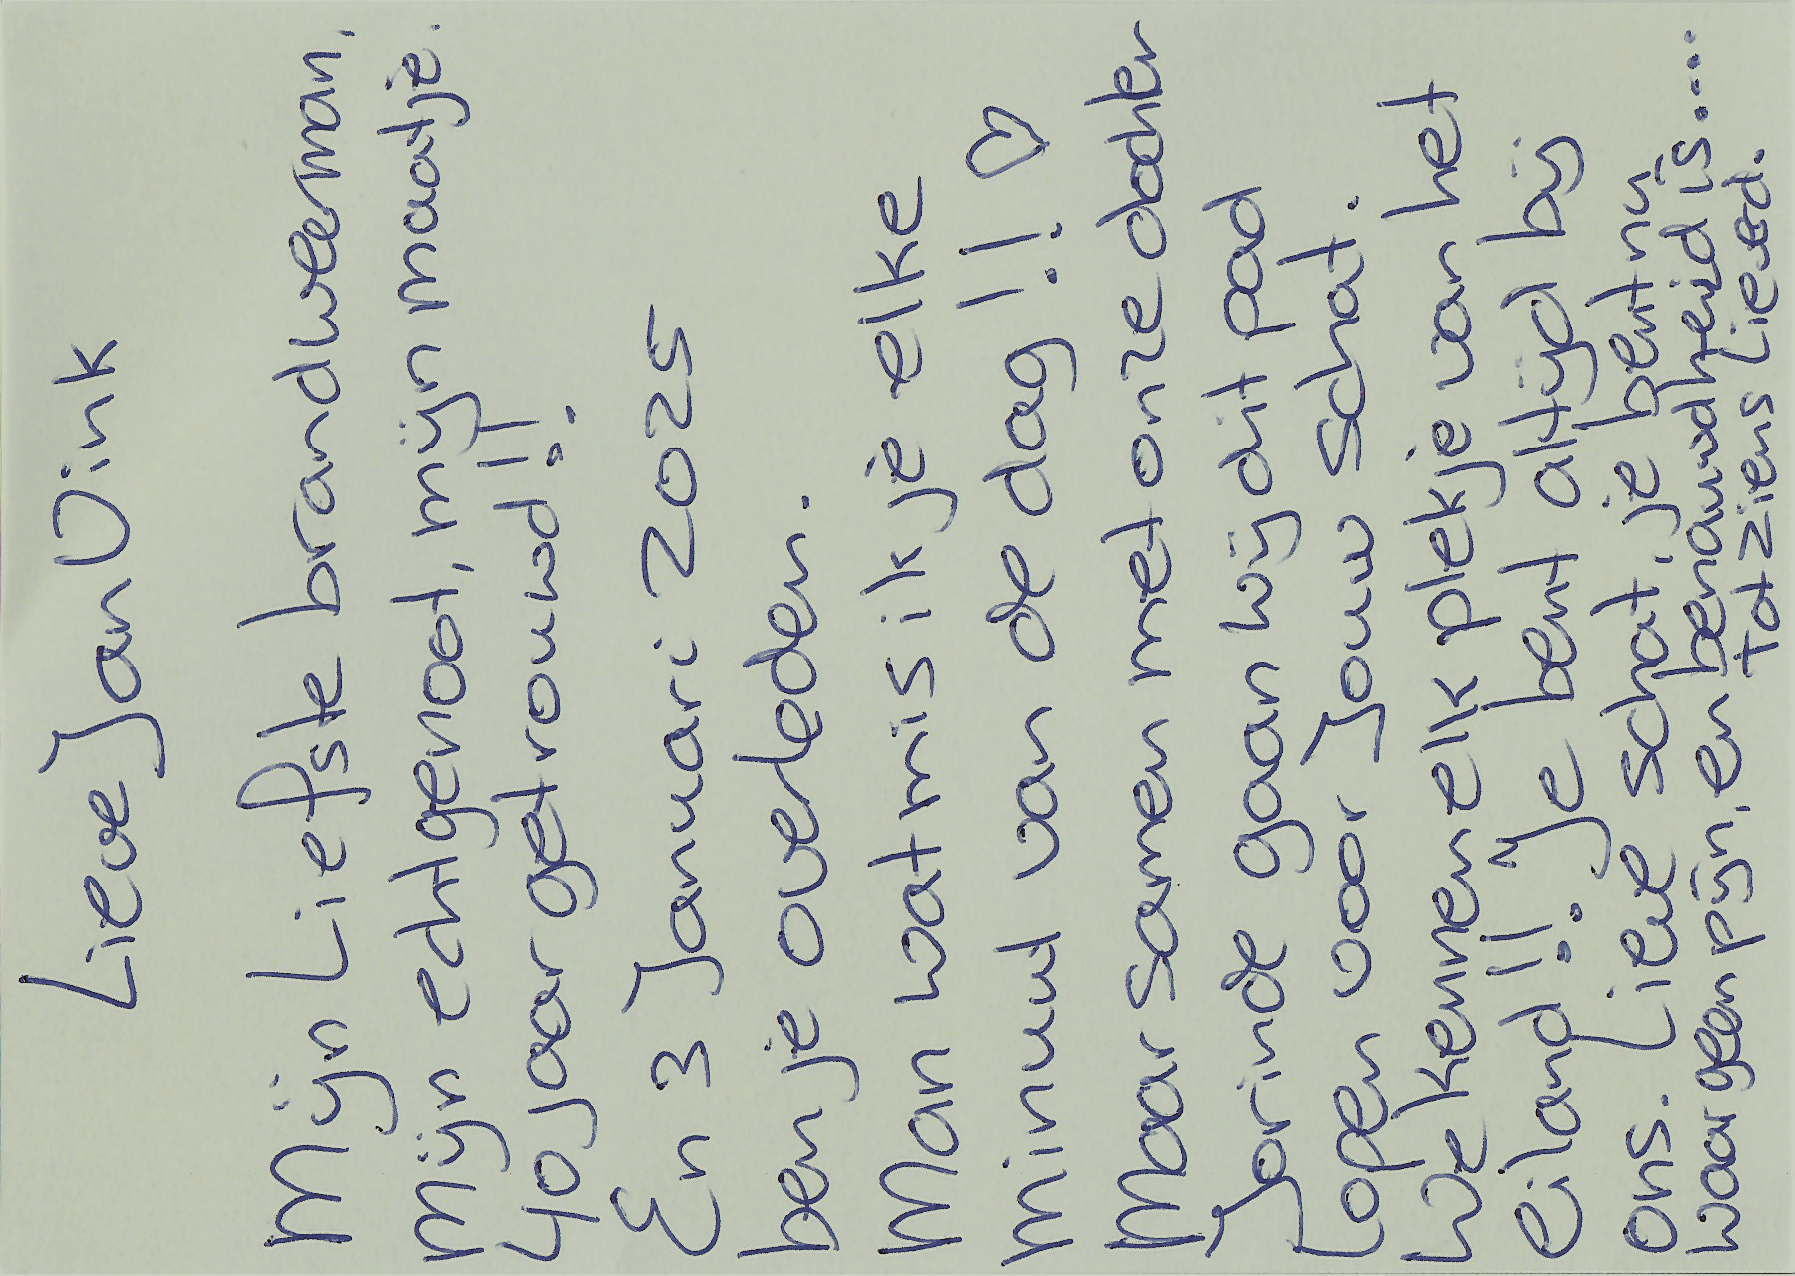 Lieve Jan Vink
Mijn Liefste brandweerman,
Mijn echtgenoot, mijn maatje.
40 Jaar getrouwd!!
En 3 Januari 2025
ben je overleden.
Man wat mis ik je elke
minuut van de dag!! ♡
Maar samen met onze dochter
Jorinde gaan wij dit pad
Lopen voor Jouw schat.
We kennen elk plekje van het
eiland!! Je bent altijd bij
ons. Lieve schat, je bent nu
waar geen pijn, en benauwdheid is....
tot ziens Lieverd.